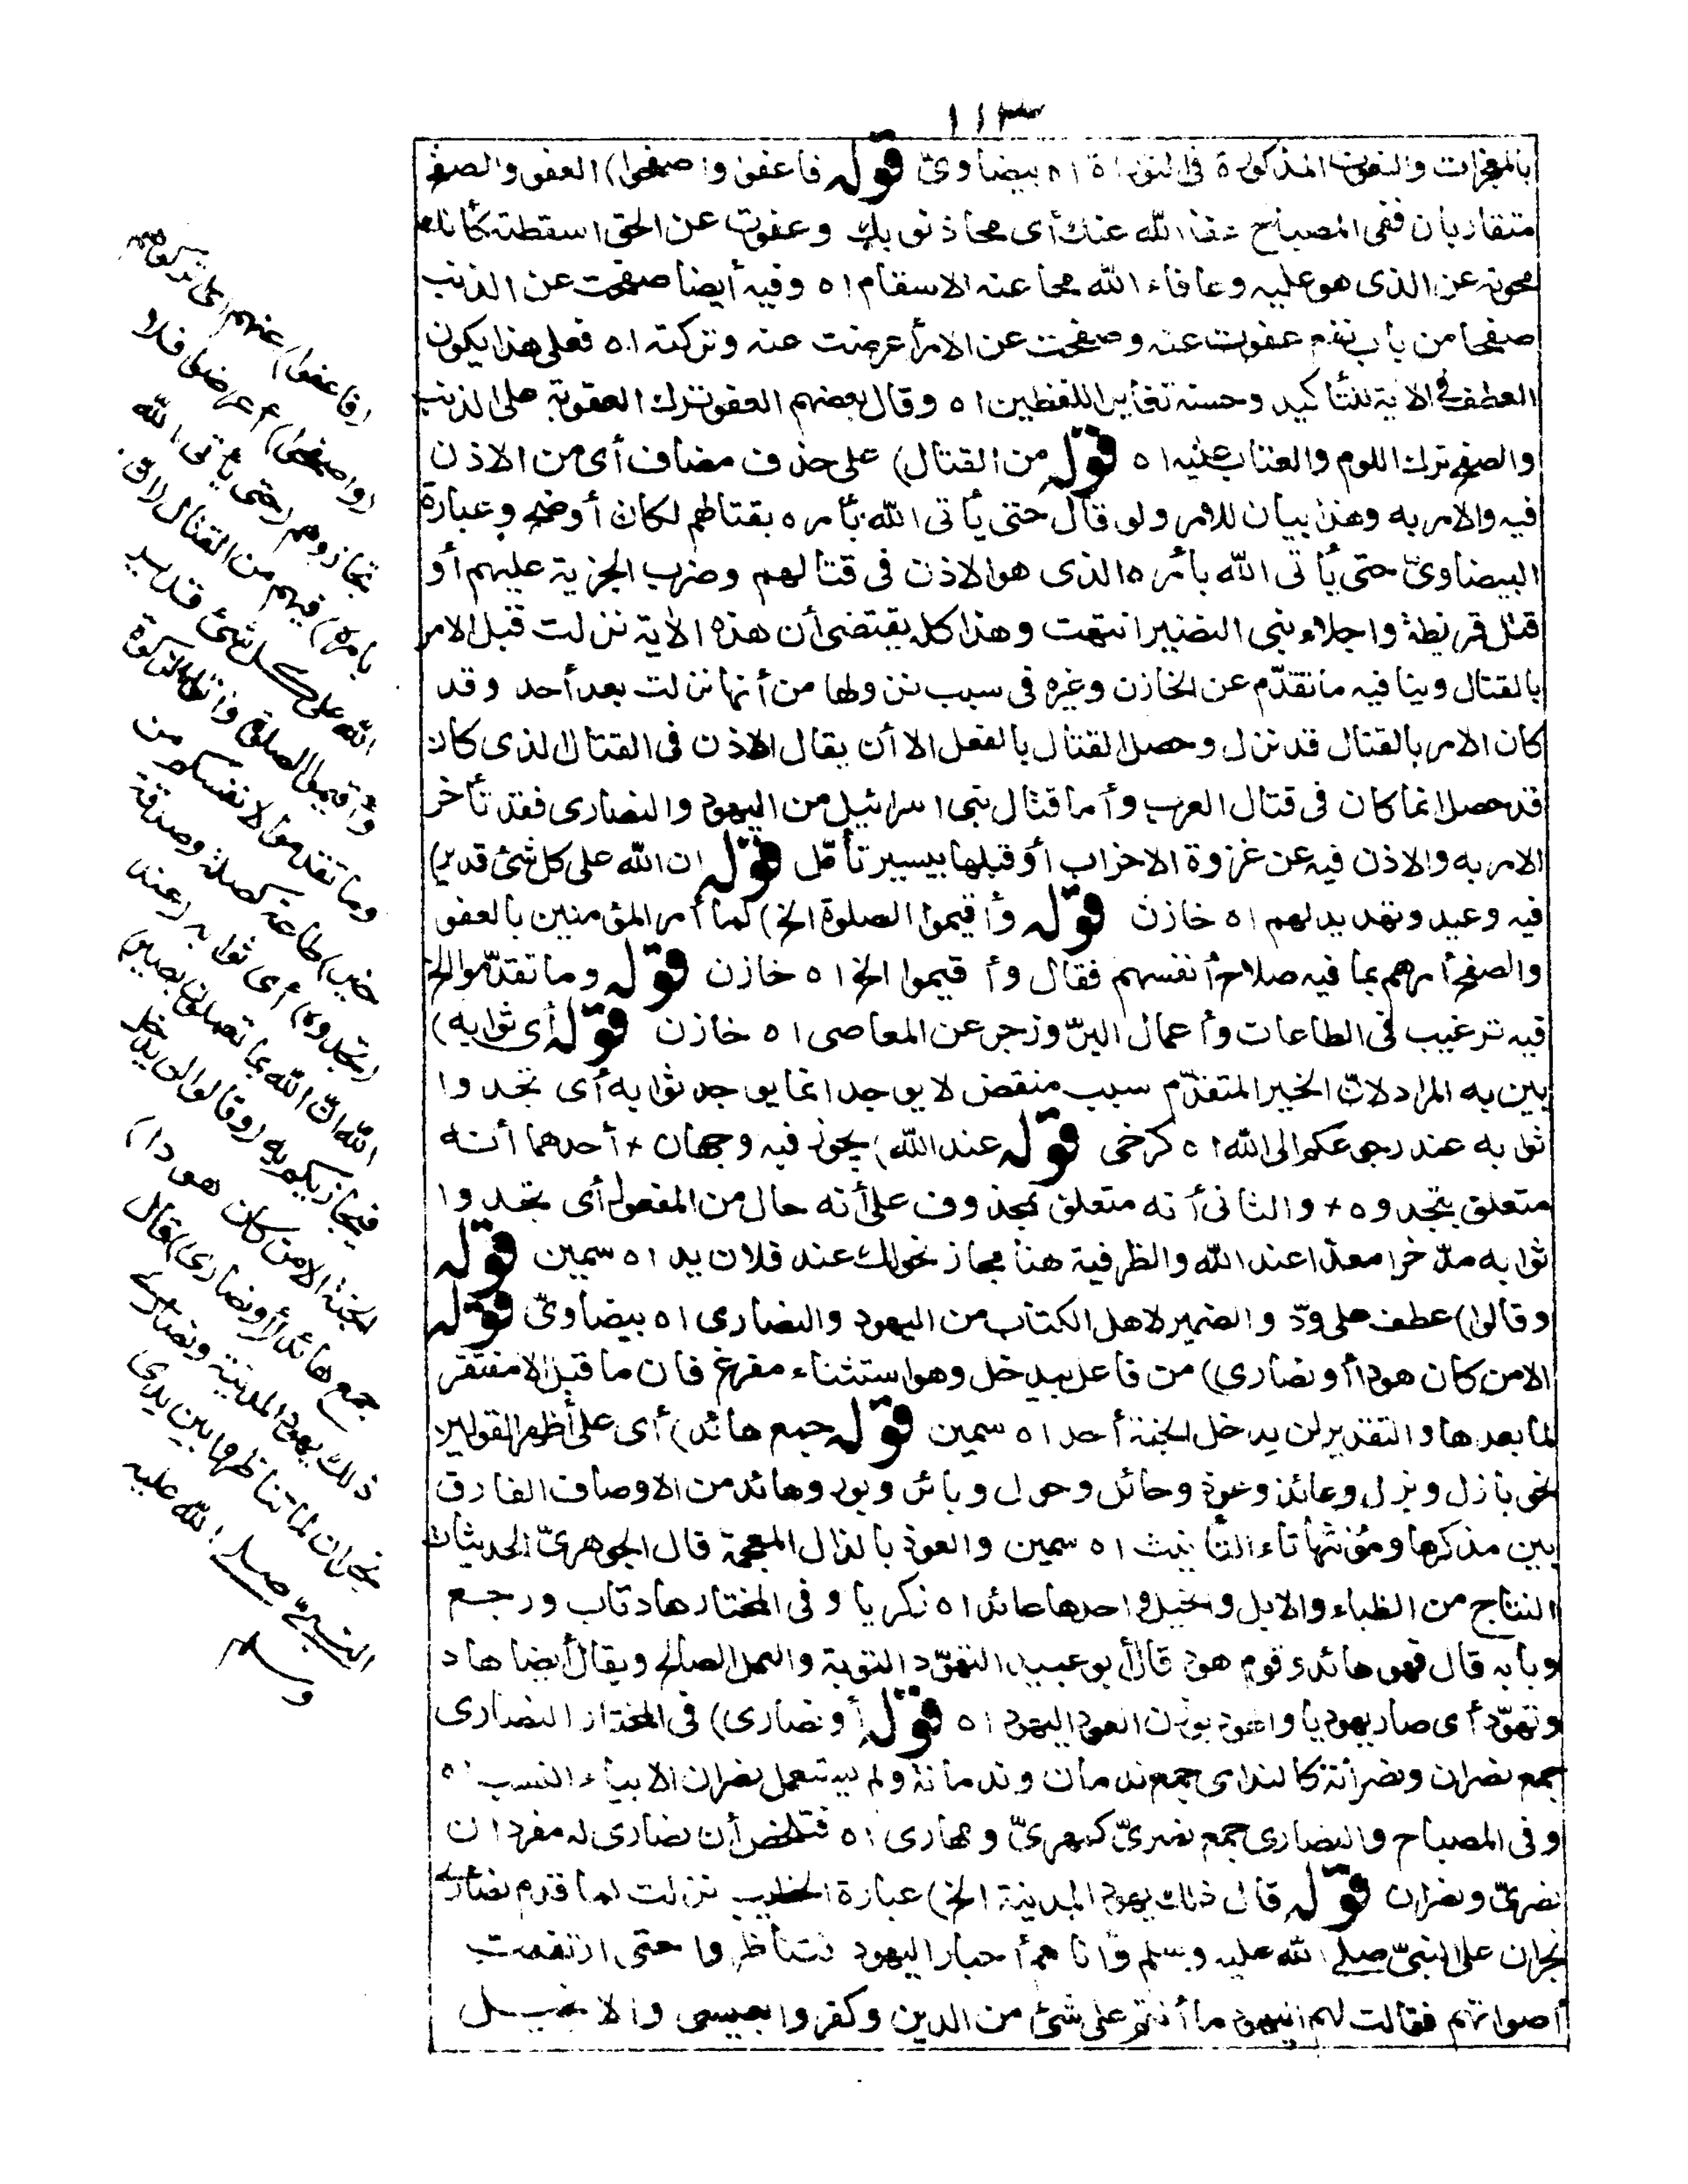 ١١٣
بالمعجزات والنعوت المذكورة في التوراة اه بيضاوىّ قوله فاعفوا واصفحوا) العفو والصفح
متقاربان ففى المصباح عفا الله عنك أى محا ذنوبك وعفوت عن الحق اسقطته كأنك
محوته عن الذى هو عليه وعافاه الله محا عنه الاسقام اه وفيه أيضا صفحت عن الذنب
صفحا من باب نفع عفوت عنه وصفحت عن الامر أعرضت عنه وتركته اه فعلى هذا يكون
العطف فى الاية للتأكيد وحسنه تغاير اللفظين اه وقال بعضهم العفو ترك العقوبة على الذنب
والصفح ترك اللوم والعتاب عليه اه قوله من القتال) على حذف مضاف أى من الاذن
فيه والامر به وهذا بيان للامر ولو قال حتى يأتى الله بأمره بقتالهم لكان أوضح وعبارة
البيضاوىّ حتى يأتى الله بأمره الذى هو الاذن فى قتالهم وضرب الجزية عليهم أو
قتل قريظة واجلاء بنى النضير انتهت وهذا كله يقتضى أن هذه الاية نزلت قبل الامر
بالقتال وينافيه ما تقدّم عن الخازن وغيره فى سبب نزولها من أنها نزلت بعد أحد وقد
كان الامر بالقتال قد نزل وحصل القتال بالفعل الا أن يقال الاذن فى القتال الذى كان
قد حصل انما كان فى قتال العرب وأما قتال بنى اسرائيل من اليهود والنصارى فقد تأخر
الامر به والاذن فيه عن غزوة الاحزاب أو قبلها بيسير تأمّل قوله ان الله على كل شئ قدير)
فيه وعيد وتهديد لهم اه خازن قوله وأقيموا الصلوة الخ) لما أمر المؤمنين بالعفو
والصفح أمرهم بما فيه صلاح أنفسهم فقال وأقيموا الخ اه خازن قوله وما تقدّموا الخ
فيه ترغيب فى الطاعات وأعمال البرّ وزجر عن المعاصى اه خازن قوله أى ثوابه)
بين به المراد لانّ الخير المتقدّم سبب منقض لا يوجد انما يوجد ثوابه أى تجدوا
ثوابه عند رجوعكم الى الله اه كرخى قوله عند الله) يجوز فيه وجهان + أحدهما أنه
متعلق بتجدوه + والثانى أنه متعلق بمحذوف على أنه حال من المفعول أى تجدوا
ثوابه مدّخرا معدّا عند الله والظرفية هنا مجاز نحو لك عند فلان يد اه سمين قوله
وقالوا) عطف على ودّ والضمير لاهل الكتاب من اليهود والنصارى اه بيضاوىّ قوله
الا من كان هودا أو نصارى) من فاعل يدخل وهو استثناء مفرغ فان ما قبل الا مفتقر
لما بعدها والتقدير لن يدخل الجنة أحد اه سمين قوله جمع هائد) أى على أظهر القولين
نحو بازل وبزل وعائذ وعوذ وحائل وحول وبائر وبور وهائد من الاوصاف الفارق
بين مذكرها ومؤنثها تاء التأنيث اه سمين والعوذ بالذال المعجمة قال الجوهرىّ الحديثات
النتاج من الظباء والابل والخيل واحدها عائذ اه زكريا وفى المختار هاد تاب ورجع
وبابه قال فهو هائد وقوم هود قال أبو عبيد التهوّد التوبة والعمل الصالح ويقال أيضا هاد
وتهوّد أى صار يهوديا والهود بوزن العود اليهود اه قوله أو نصارى) فى المختار النصارى
جمع نصران ونصرانة كالندامى جمع ندمان وندمانة ولم يستعمل نصران الا بياء النسب اه
وفى المصباح والنصارى جمع نصرىّ كمهرىّ ومهارى اه فتلخص أن نصارى له مفردان
نصرىّ ونصران قوله قال ذلك يهود المدينة الخ) عبارة الخطيب نزلت لما قدم نصارى
نجران على النبىّ صلى الله عليه وسلم وأتاهم أحبار اليهود فتناظروا حتى ارتفعت
أصواتهم فقالت لهم اليهود ما أنتم على شئ من الدين وكفروا بعيسى والانجيل
(فاعفوا) عنهم اى تركوهم
(واصفحوا) أعرضوا فلا
تجازوهم (حتى يأتى الله
بامره) فيهم من القتال (ان
الله على كل شئ قدير
وأقيموا الصلوة واتوا الزكوة
وما تقدموا لانفسكم من
خير) طاعة كصلة وصدقة
(تجدوه) أى ثوابه (عند
الله ان الله بما تعملون بصير)
فيجازيكم به (وقالوا لن يدخل
الجنة الا من كان هودا)
جمع هائد (أو نصارى) قال
ذلك يهود المدينة ونصارى
نجران لما تناظروا بين يدى
النبىّ صلى الله عليه
وسلم